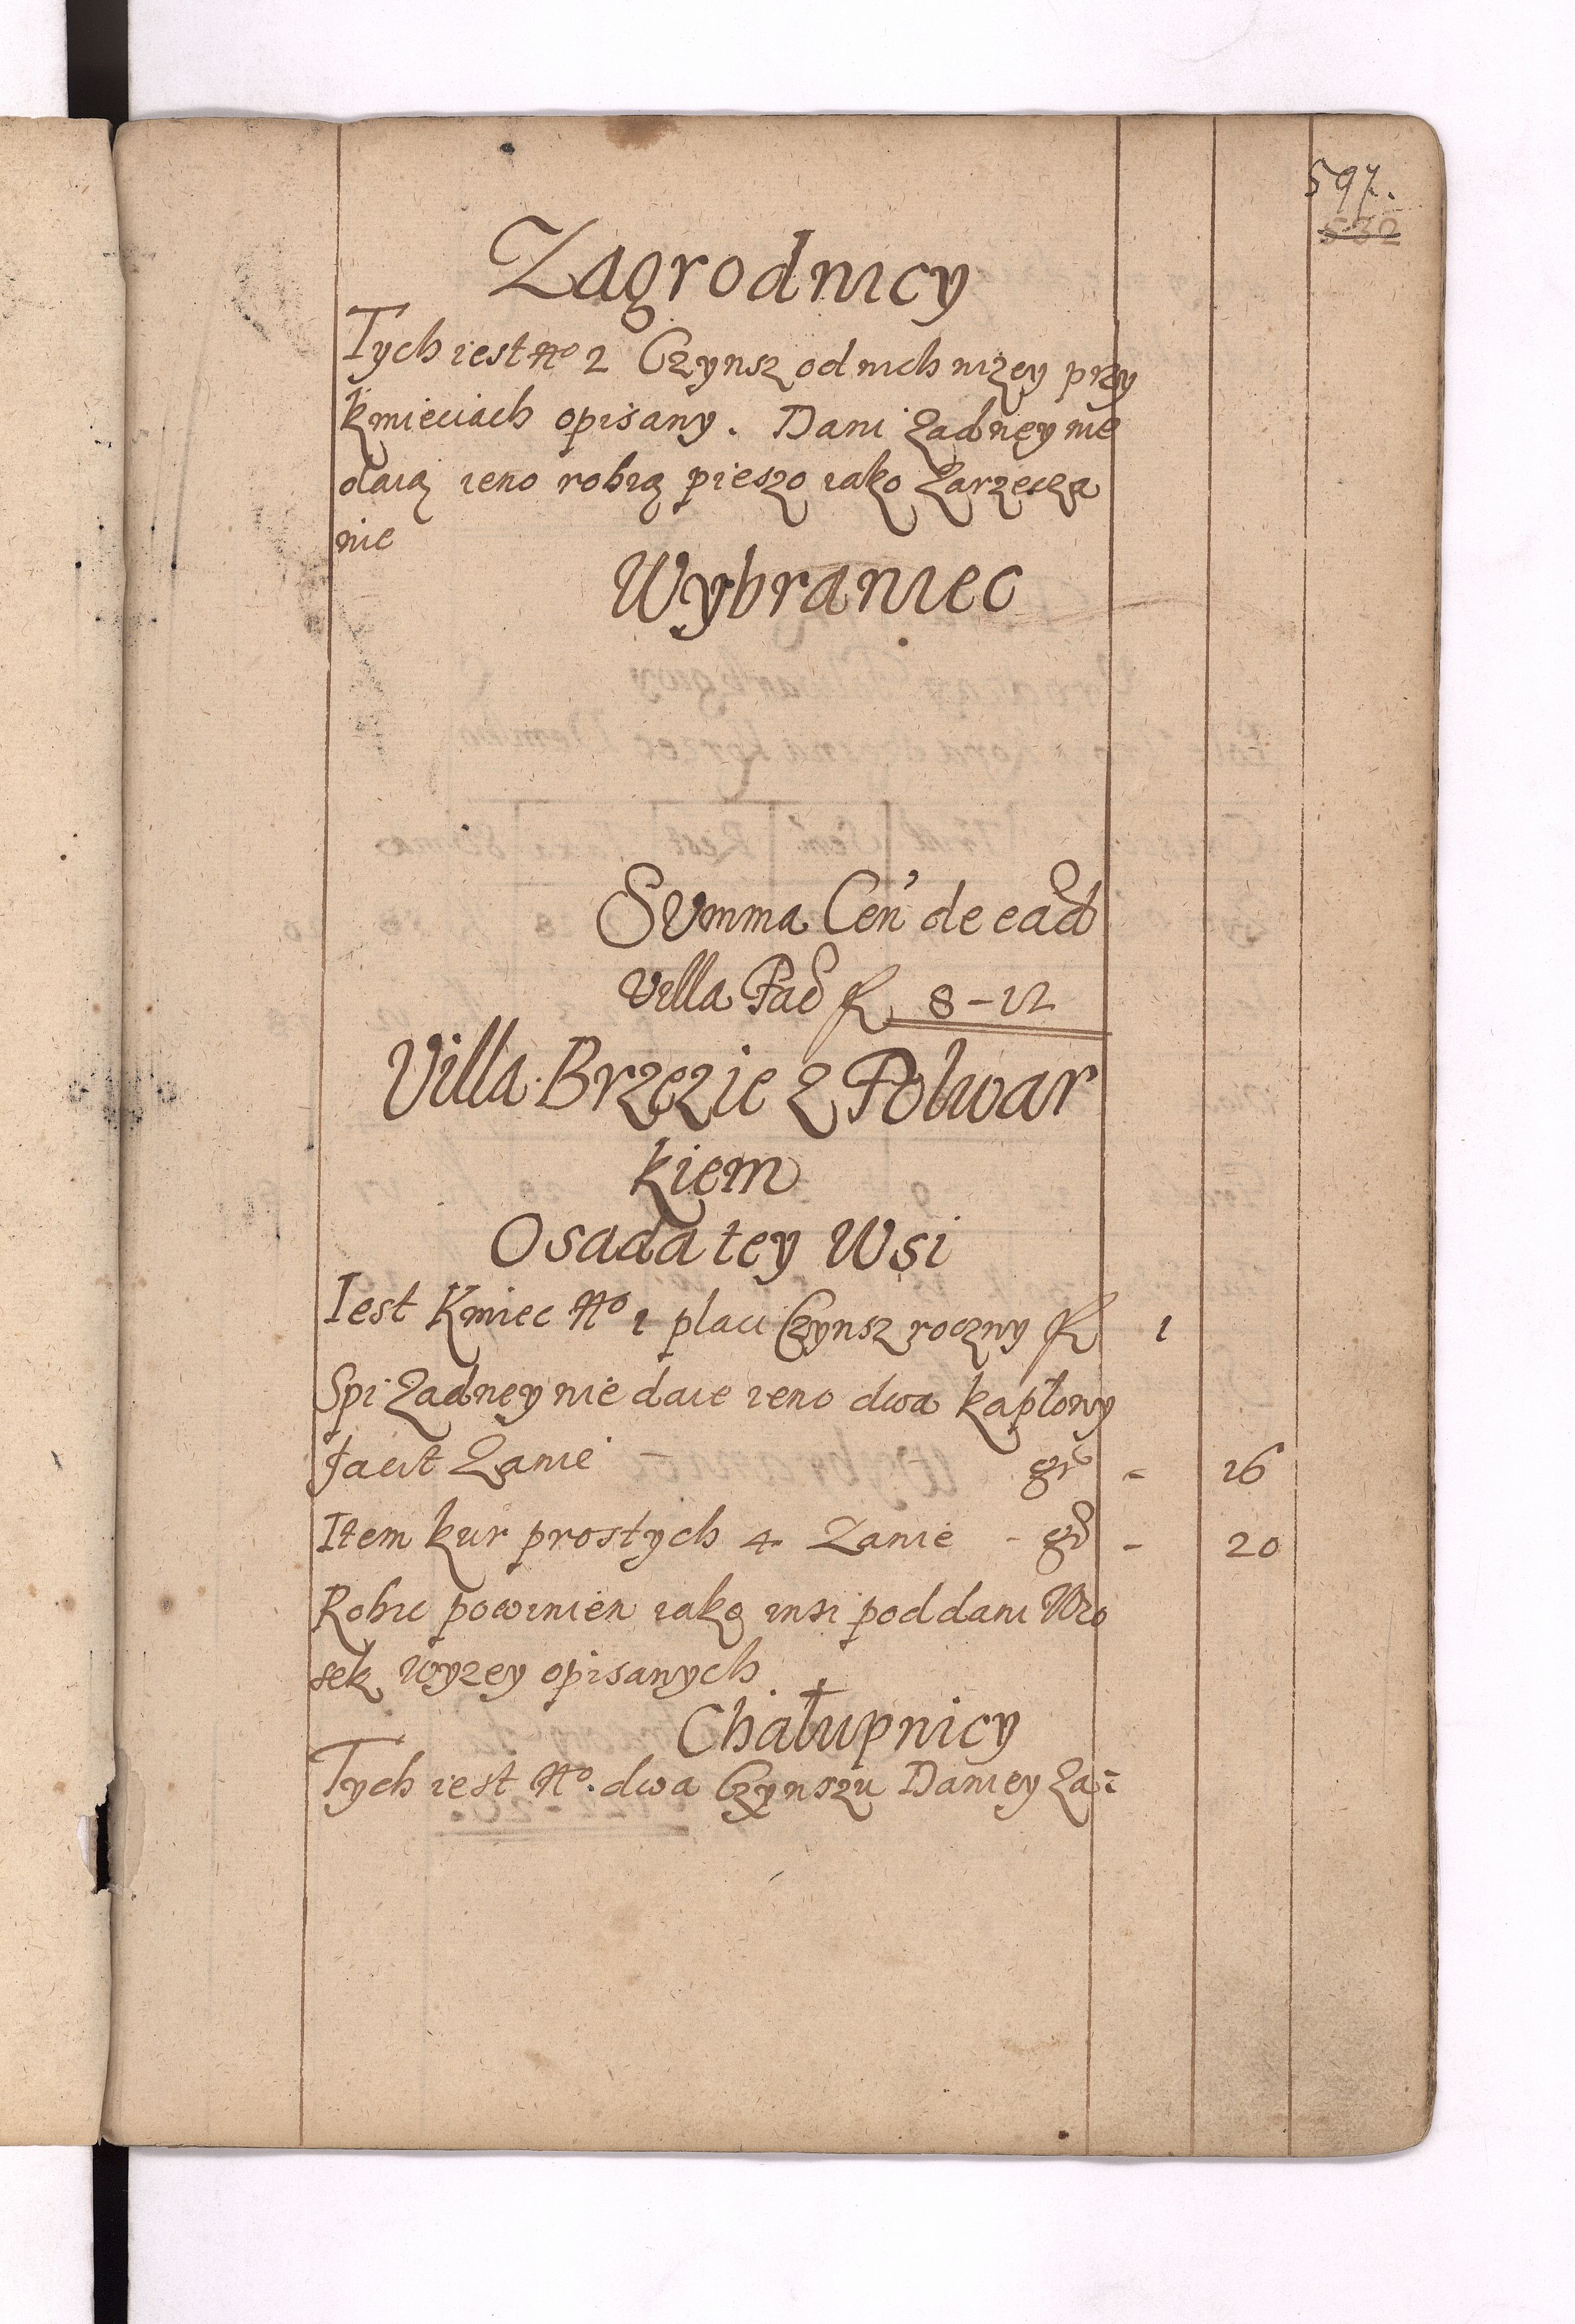 597.
530
Zagrodnicy
Tych iest No 2 Czynsz od nich nizey przy
kmieciach opisany. Dani zadney nie
daią ieno robią pieszo iako Zarzecza
nie
Wybraniec
Summa Cen de ead
Villa Fac fl 8-12
Villa Brzezie z Folwar
kiem
Osada tey Wsi
Iest Kmiec No 1 placi Czynsz roczny fl 1
Spi zadney nie daie ieno dwa kapłony
facit Zanie - gr - 16
Item kur prostych 4 Zanie - gr - 20
Robic powinien iako insi poddani Wio
sek wyzey opisanych
Chałupnicy
Tych iest No. dwa Czynszu Daniey za=